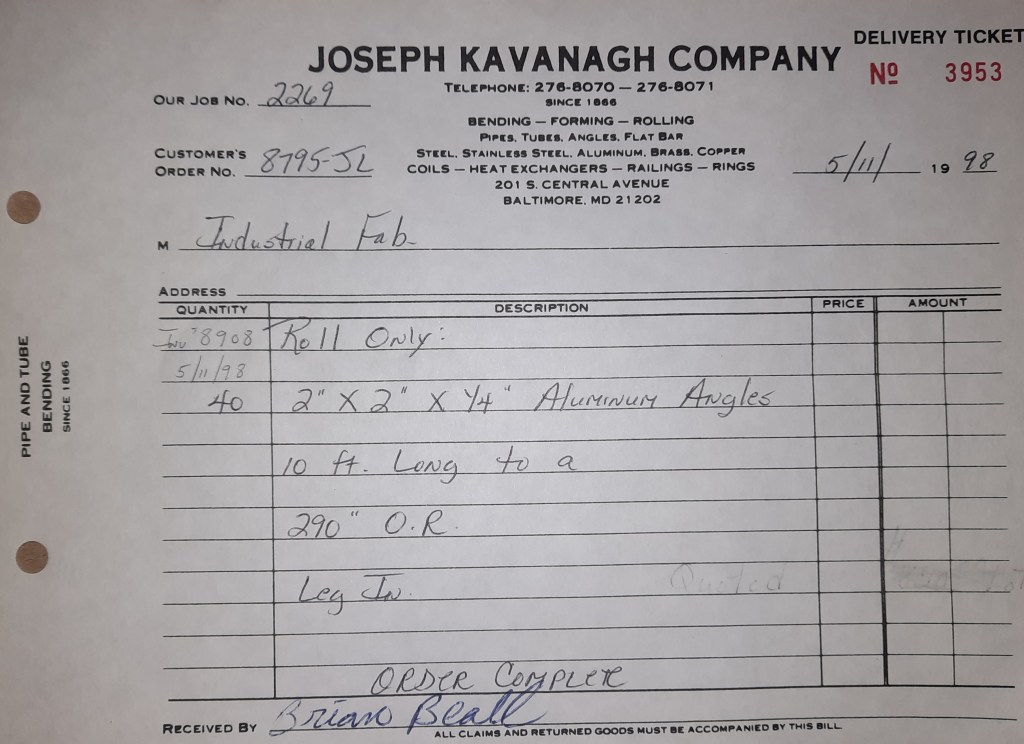 DELIVERY TICKET
JOSEPH KAVANAGH COMPANY
Nº 3953
TELEPHONE: 276-8070 — 276-8071
SINCE 1866
OUR JOB NO. 2269
BENDING — FORMING — ROLLING
PIPES, TUBES, ANGLES, FLAT BAR
STEEL, STAINLESS STEEL, ALUMINUM, BRASS, COPPER
CUSTOMER'S
ORDER NO. 8795-JL
COILS — HEAT EXCHANGERS — RAILINGS — RINGS
5/11/ 19 98
201 S. CENTRAL AVENUE
BALTIMORE, MD 21202
M Industrial Fab.
ADDRESS
QUANTITY DESCRIPTION PRICE AMOUNT
Inv # 8908 Roll Only:
5/11/98
40 2" X 2" X 1/4" Aluminum Angles
10 ft. Long to a
290" O.R.
Quoted
Leg In.
ORDER COMPLETE
RECEIVED BY Brian Beall
ALL CLAIMS AND RETURNED GOODS MUST BE ACCOMPANIED BY THIS BILL
PIPE AND TUBE
BENDING
SINCE 1866